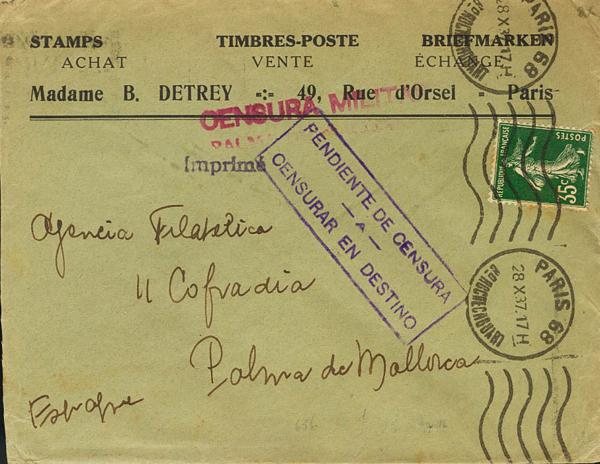 STAMPS TIMBRES-POSTE BRIEFMARKEN
ACHAT VENTE ÉCHANGE
Madame B. DETREY -:- 49, Rue d'Orsel - Paris
CENSURA MILIT
Imprimé
PENDIENTE DE CENSURA
A
CENSURAR EN DESTINO
PARIS 68
28 X 37. 17 H
POSTES
RÉPUBLIQUE FRANÇAISE
35c
Agencia Filatelica
11 Cofradia
Palma de Mallorca
Espagne
PARIS 68
28 X 37. 17 H
R. DE ROCHECHOUART